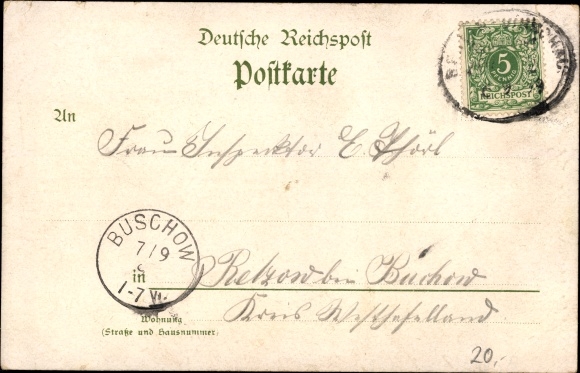 Deutsche Reichspost
Postkarte
5
PFENNIG
REICHSPOST
An
Frau Inspektor E.
BUSCHOW
7/9
1-7 V.
in Retzow bei Buchow
Kreis Westhafelland.
Wohnung
(Straße und Hausnummer)
20,-